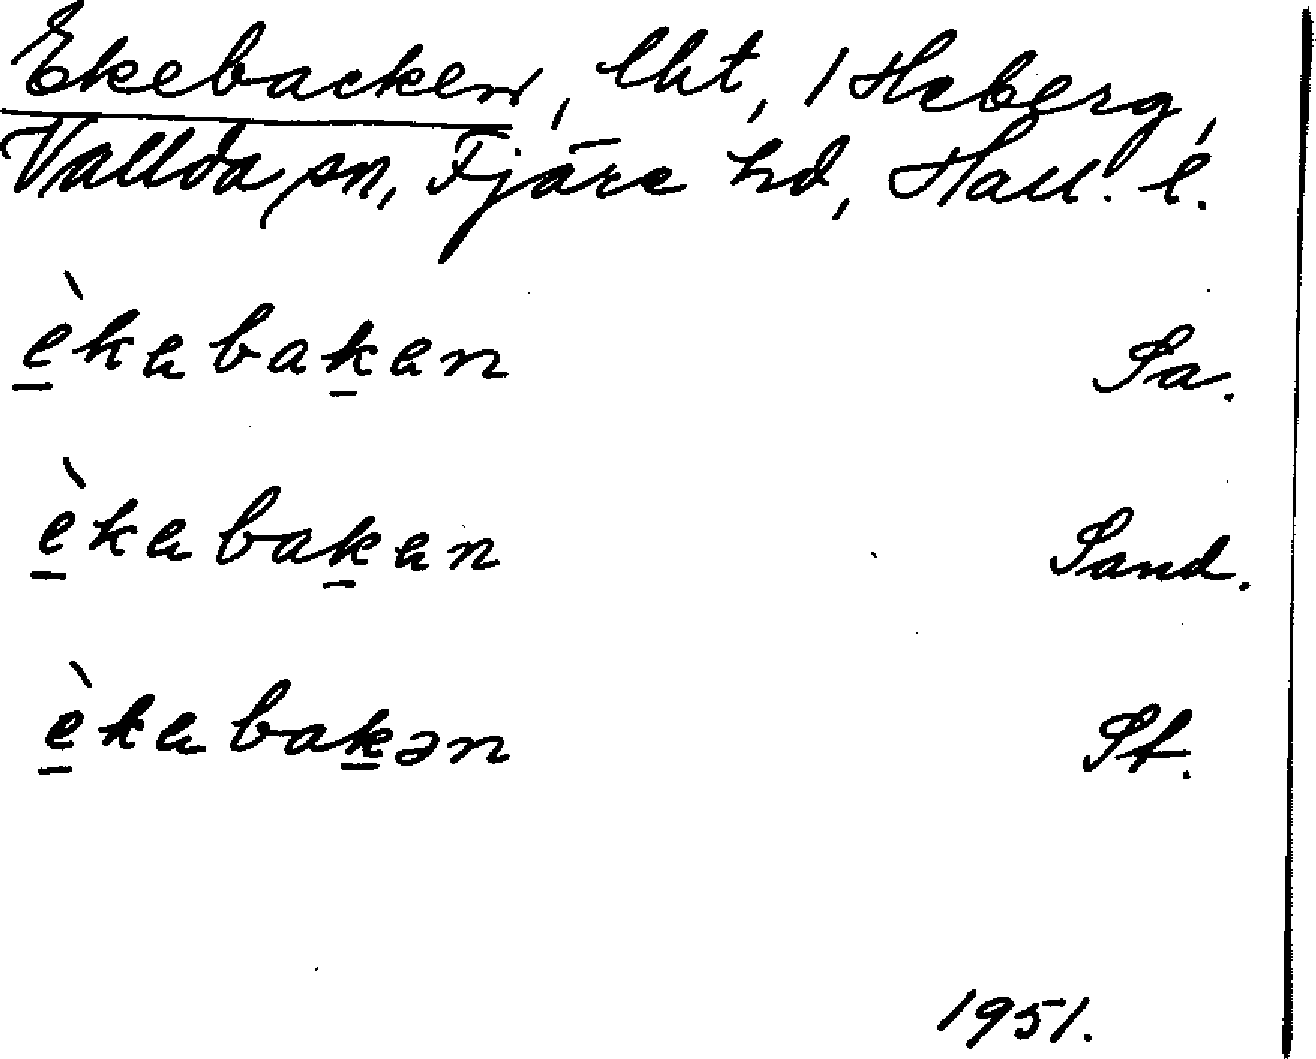 Ekebacken, lht, 1 Heberg,
Vallda sn, Fjäre hd, Hall. l.
èkebaken Sa.
èkebaken Sand.
èkebakən St.
1951.